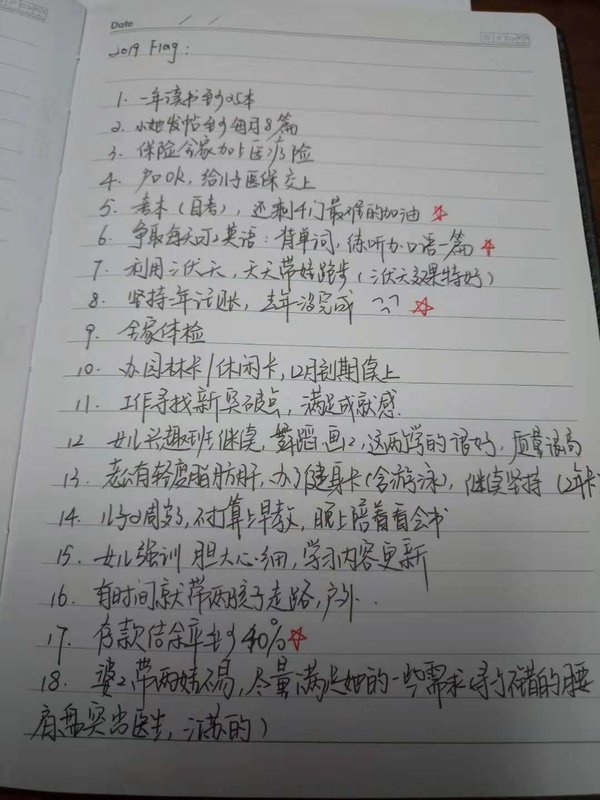 Date / /
2019 Flag:
1. 一年读书至少25本
2. 小她发帖至少每月8篇
3. 保险全家加上医疗险
4. 户口OK, 给儿子医保交上
5. 考本(自考), 还剩4门最难的加油 ☆
6. 争取每天可以英语: 背单词, 练听力口语一篇 ☆
7. 利用三伏天, 天天带娃跑步 (三伏天效果特好)
8. 坚持一年记账, 去年没完成 ☆
9. 全家体检
10. 办园林卡/休闲卡, 12月到期续上
11. 工作寻找新突破点, 满足成就感
12 女儿兴趣班继续, 舞蹈、画画, 这两学的很好, 质量很高
13. 老公有轻度脂肪肝, 办了健身卡(含游泳), 继续坚持 (2年卡
14. 儿子2周岁, 不打算上早教, 晚上陪着看会书
15. 女儿强训 胆大心细, 学习内容更新
16. 有时间就带两孩子走路, 户外..
17. 存款结余率至少40% ☆
18. 婆婆带两娃不易, 尽量满足她的一些需求 (寻个不错的腰
肩盘突出医生, 江苏的)